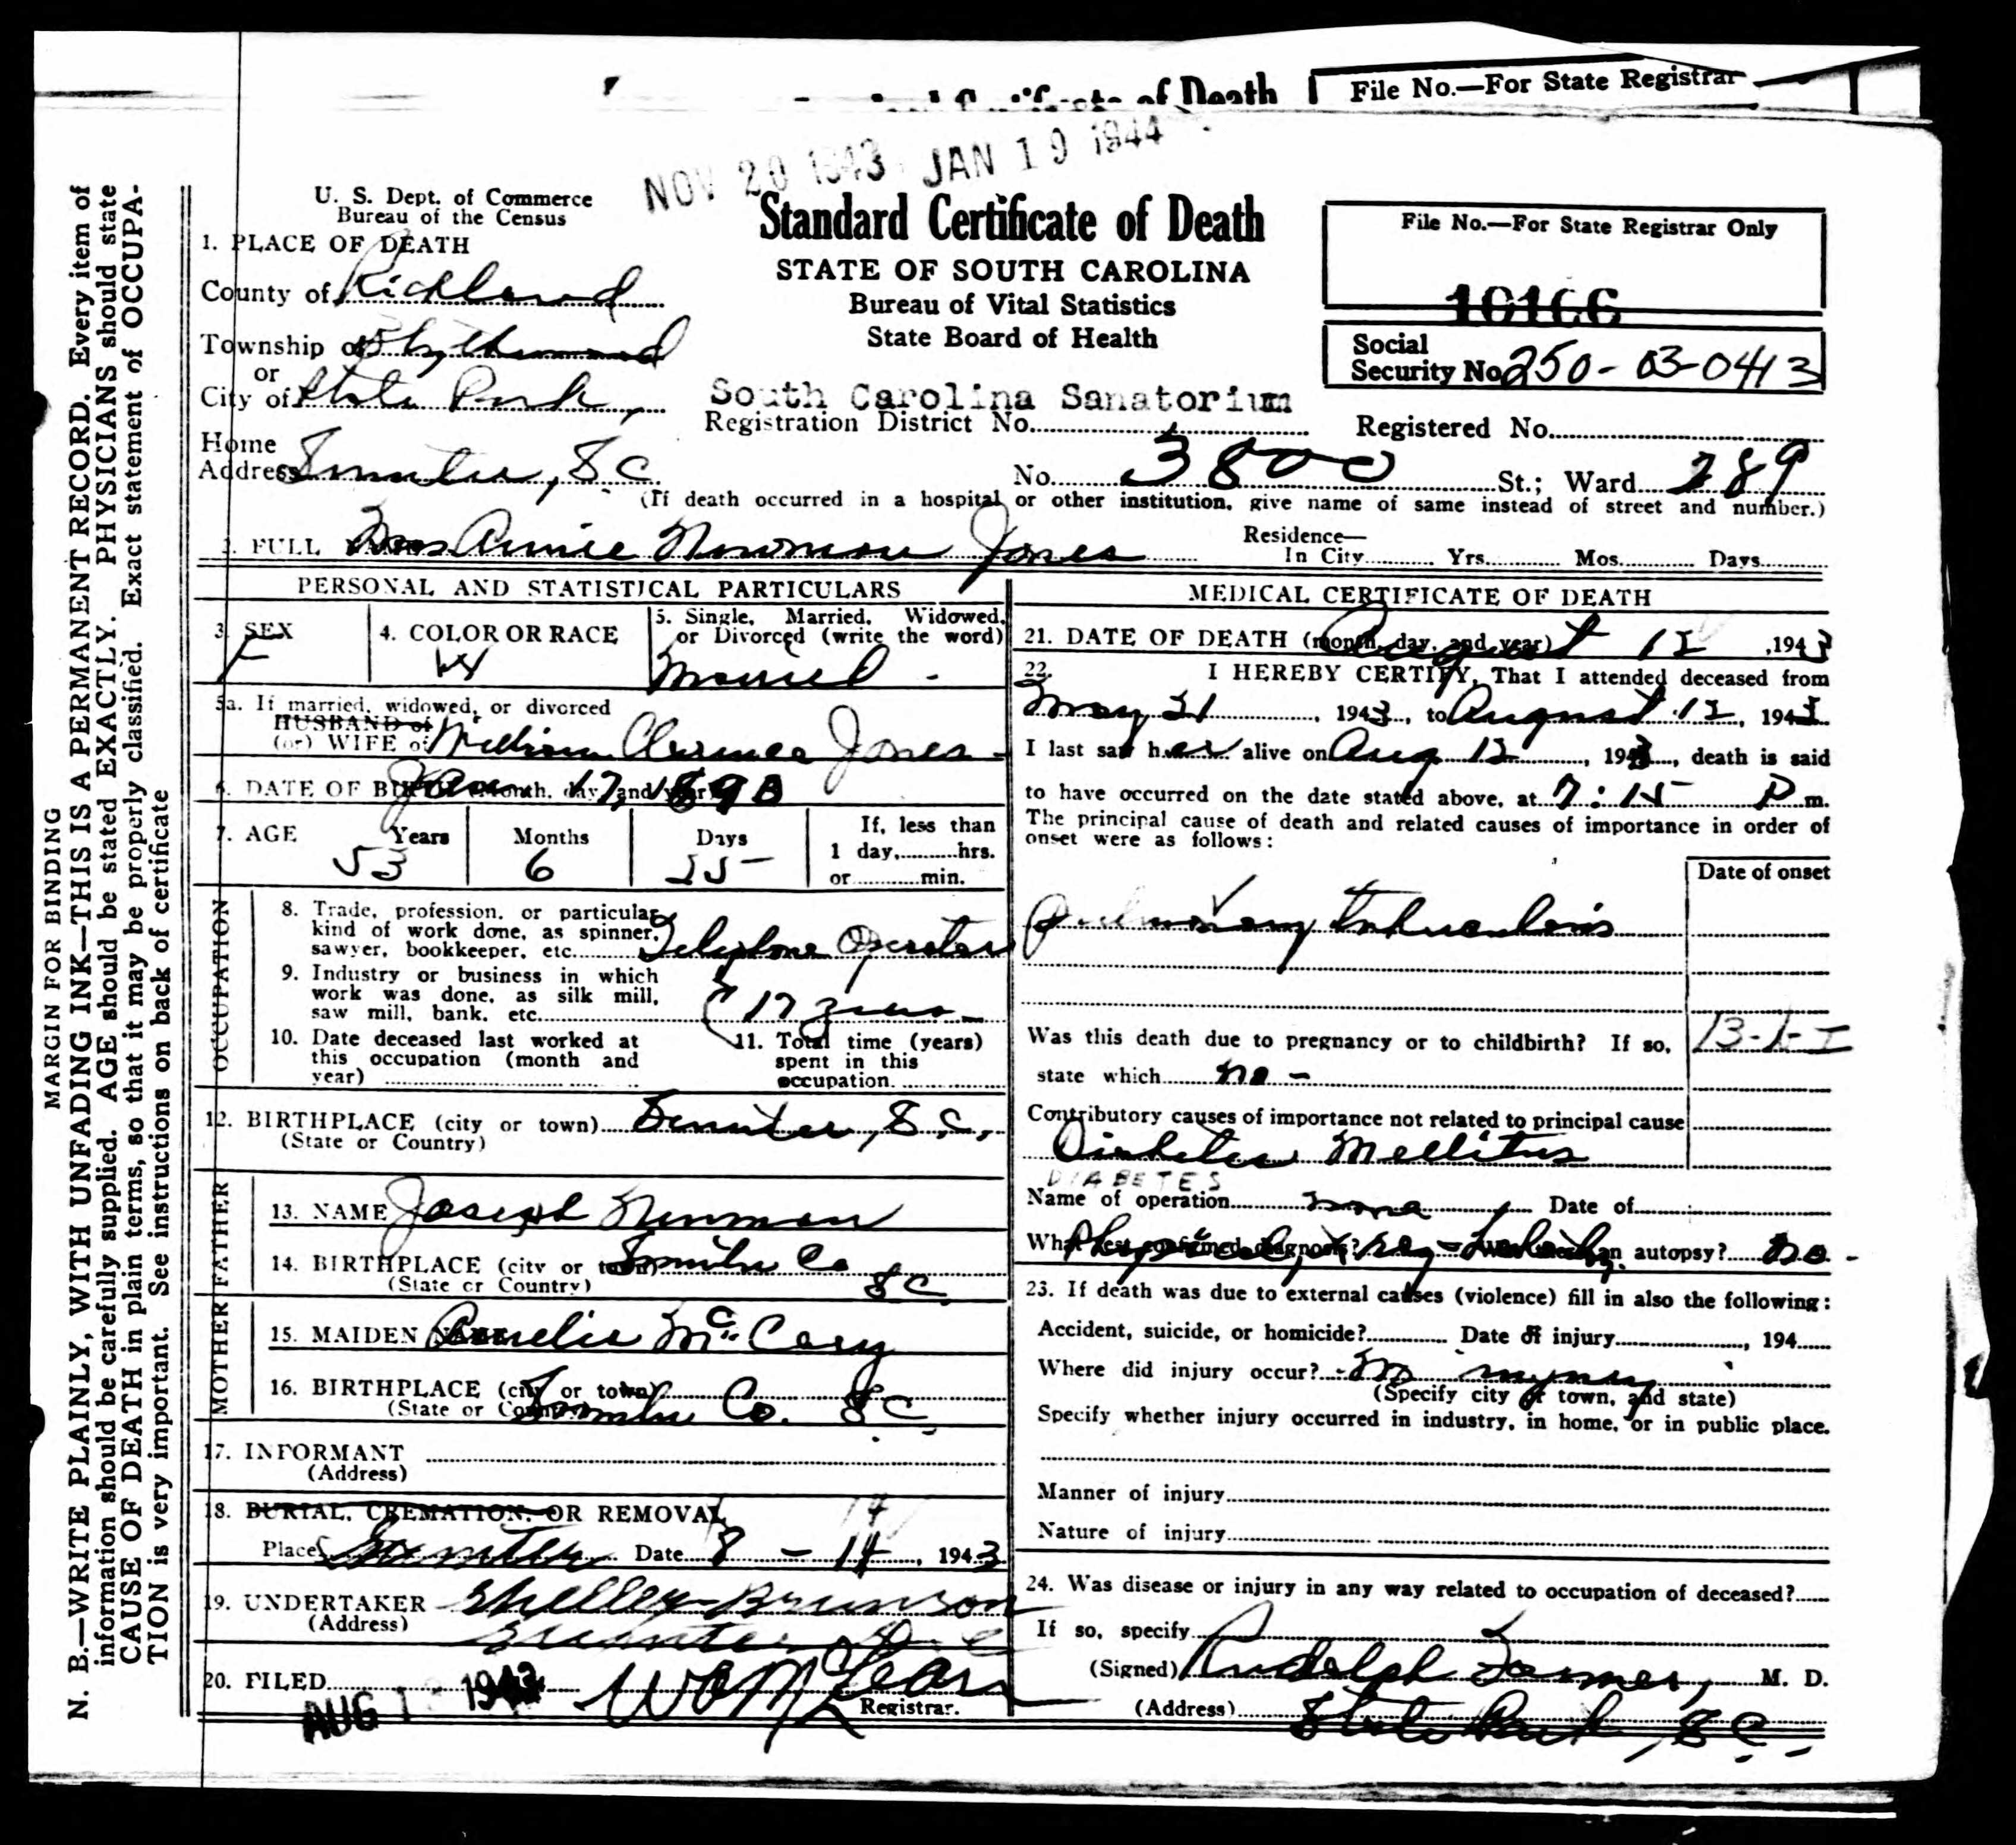 of Death
File No.—For State Registrar
NOV 20 1943 JAN 19 1944
U. S. Dept. of Commerce
Bureau of the Census
Standard Certificate of Death
STATE OF SOUTH CAROLINA
Bureau of Vital Statistics
State Board of Health
File No.—For State Registrar Only
10166
Social
Security No. 250-03-0413
1. PLACE OF DEATH
County of Richland
Township of Blythewood
or
City of State Park,
South Carolina Sanatorium
Registration District No.
Registered No.
Home
Address Sumter, S C
No. 3800 St.; Ward 289
(If death occurred in a hospital or other institution, give name of same instead of street and number.)
2. FULL Mrs Annie Newman Jones
Residence—
In City Yrs. Mos. Days
PERSONAL AND STATISTICAL PARTICULARS
3. SEX
F
4. COLOR OR RACE
W
5. Single, Married, Widowed,
or Divorced (write the word)
Married
5a. If married, widowed, or divorced
HUSBAND of
(or) WIFE of William Clarence Jones
6. DATE OF BIRTH (month, day, and year) Jan 17, 1890
7. AGE
Years Months Days
53 6 25
If, less than
1 day, hrs.
or min.
OCCUPATION
8. Trade, profession, or particular
kind of work done, as spinner,
sawyer, bookkeeper, etc. Telephone Operator
9. Industry or business in which
work was done, as silk mill,
saw mill, bank, etc. 17 years
10. Date deceased last worked at
this occupation (month and
year)
11. Total time (years)
spent in this
occupation
12. BIRTHPLACE (city or town) Sumter, S.C.
(State or Country)
FATHER
13. NAME Joseph Newman
14. BIRTHPLACE (city or town) Sumter Co
(State or Country) S C
MOTHER
15. MAIDEN NAME Amelia McCary
16. BIRTHPLACE (city or town)
(State or Country) Sumter Co. S C
17. INFORMANT
(Address)
18. BURIAL, CREMATION, OR REMOVAL
Place Sumter Date 8 - 14, 1943
19. UNDERTAKER Shelley-Brunson
(Address) Sumter S. C
20. FILED AUG 1943
Registrar.
MEDICAL CERTIFICATE OF DEATH
21. DATE OF DEATH (month, day, and year) August 12, 1943
22. I HEREBY CERTIFY, That I attended deceased from
May 21, 1943, to August 12, 1943
I last saw her alive on Aug 12, 1943, death is said
to have occurred on the date stated above, at 7:15 P m.
The principal cause of death and related causes of importance in order of
onset were as follows:
Date of onset
Pulmonary tuberculosis
Was this death due to pregnancy or to childbirth? If so,
state which no -
13-1-I
Contributory causes of importance not related to principal cause
Diabetes Mellitus
DIABETES
Name of operation none Date of
What test confirmed diagnosis? Physical, X ray Was there an autopsy? no -
23. If death was due to external causes (violence) fill in also the following:
Accident, suicide, or homicide? Date of injury, 194
Where did injury occur? injury
(Specify city or town, and state)
Specify whether injury occurred in industry, in home, or in public place.
Manner of injury
Nature of injury
24. Was disease or injury in any way related to occupation of deceased?
If so, specify
(Signed) Rudolph Farmer, M. D.
(Address) State Park, S C.
MARGIN FOR BINDING
N. B.—WRITE PLAINLY, WITH UNFADING INK—THIS IS A PERMANENT RECORD. Every item of
information should be carefully supplied. AGE should be stated EXACTLY. PHYSICIANS should state
CAUSE OF DEATH in plain terms, so that it may be properly classified. Exact statement of OCCUPA-
TION is very important. See instructions on back of certificate